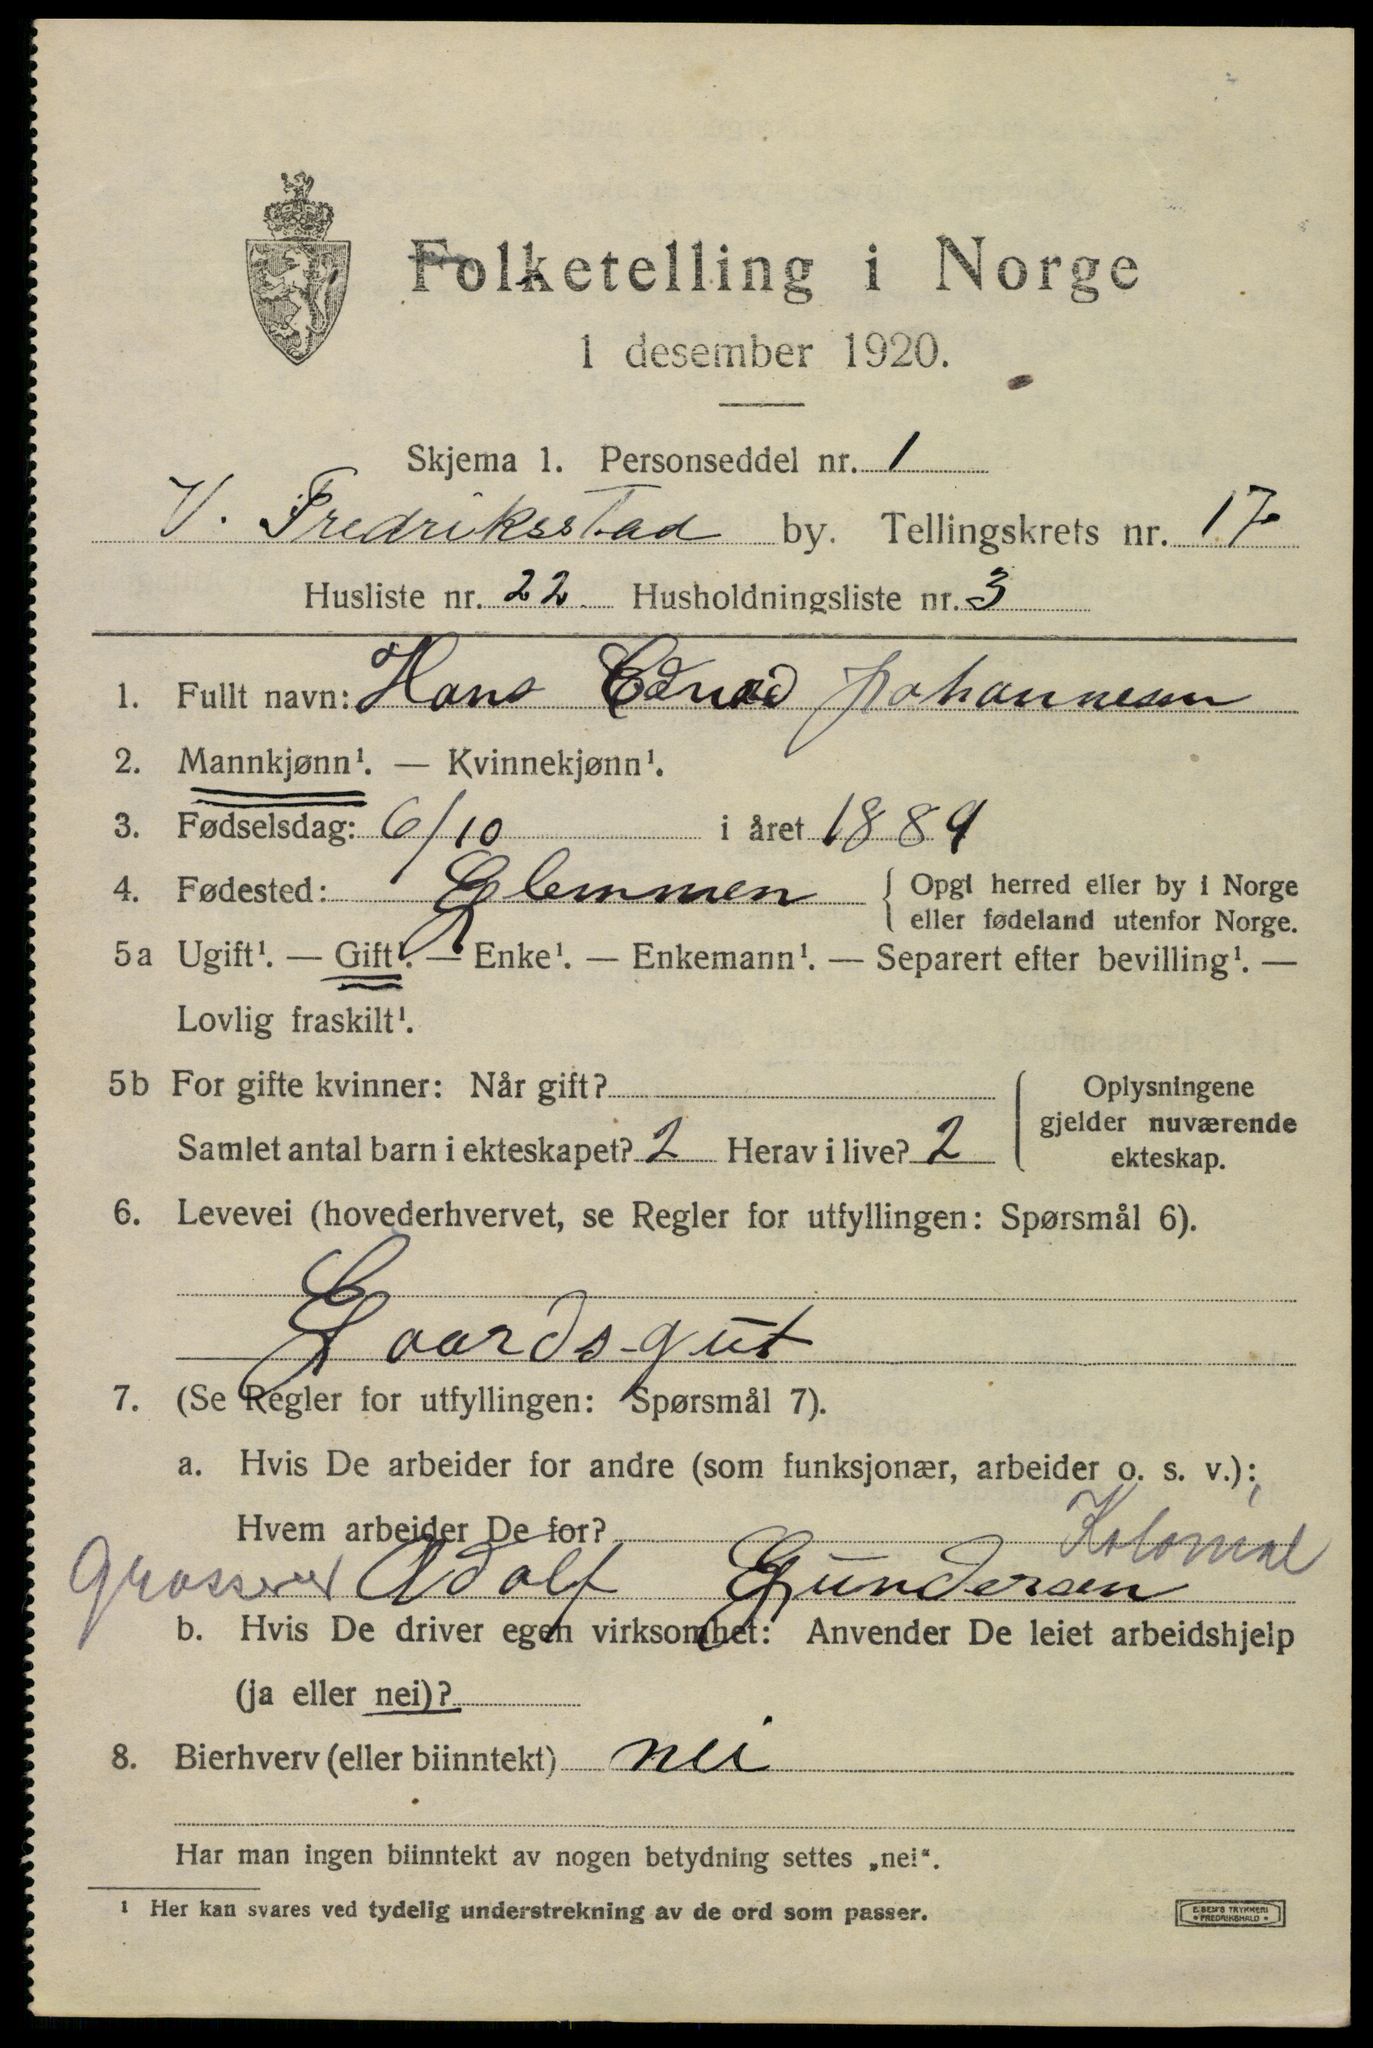 Folketelling i Norge
1 desember 1920.
Skjema 1. Personseddel nr. 1
V. Fredriksstad by. Tellingskrets nr. 17
Husliste nr. 22 Husholdningsliste nr. 3
1. Fullt navn: Hans Johannesen
2. Mannkjønn¹. — Kvinnekjønn¹.
3. Fødselsdag: 6/10 i året 1889
4. Fødested: Glemmen { Opgi herred eller by i Norge
eller fødeland utenfor Norge.
5a Ugift¹. — Gift¹. — Enke¹. — Enkemann¹. — Separert efter bevilling¹. —
Lovlig fraskilt¹.
5b For gifte kvinner: Når gift?
Samlet antal barn i ekteskapet? 2 Herav i live? 2
{ Oplysningene
gjelder nuværende
ekteskap.
6. Levevei (hovederhvervet, se Regler for utfyllingen: Spørsmål 6).
Gaardsgut
7. (Se Regler for utfyllingen: Spørsmål 7).
a. Hvis De arbeider for andre (som funksjonær, arbeider o. s. v.):
Hvem arbeider De for? Kolonial
Grosserer Adolf Gundersen
b. Hvis De driver egen virksomhet: Anvender De leiet arbeidshjelp
(ja eller nei)?
8. Bierhverv (eller biinntekt) nei
Har man ingen biinntekt av nogen betydning settes „nei“.
¹ Her kan svares ved tydelig understrekning av de ord som passer.
E. SEM'S TRYKKERI
FREDRIKSHALD